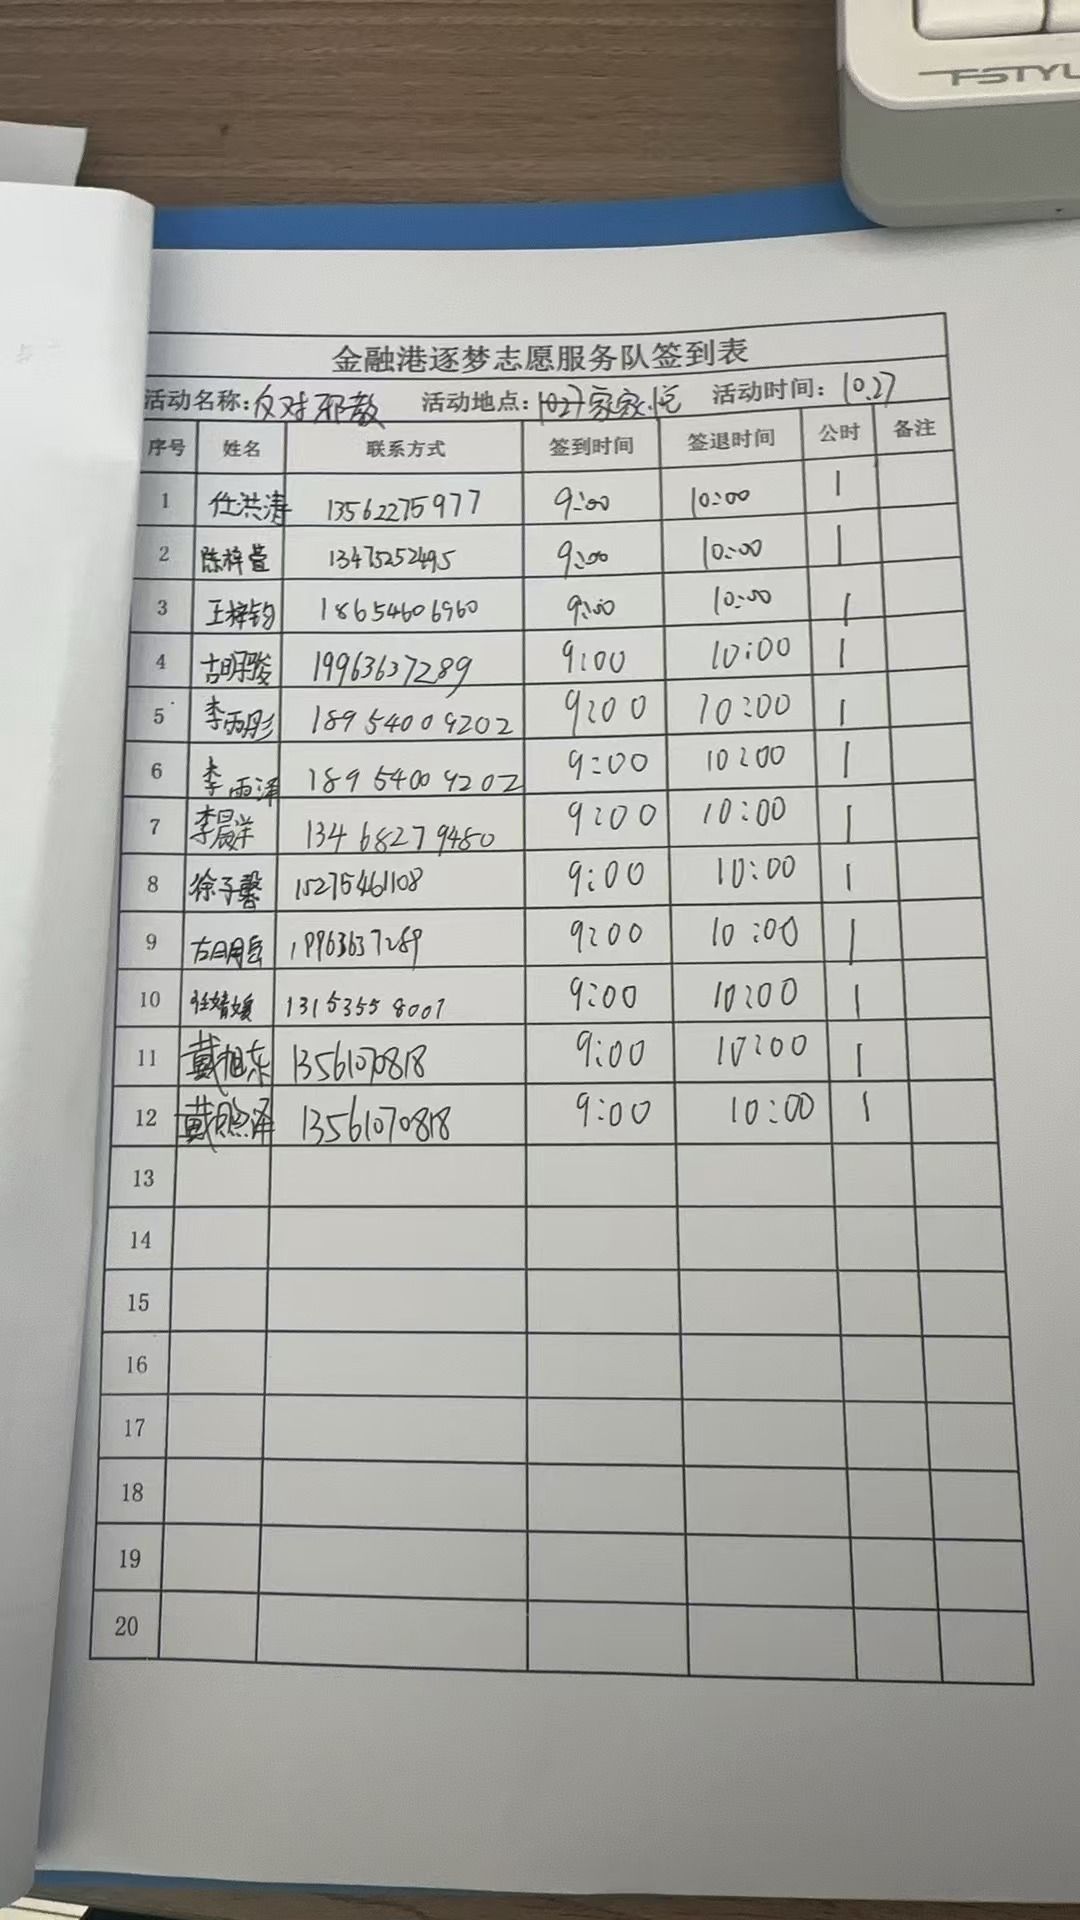 FSTYL
金融港逐梦志愿服务队签到表
活动名称:反对邪教 活动地点:家家悦 活动时间:10.27
序号 姓名 联系方式 签到时间 签退时间 公时 备注
1 任洪涛 13562275977 9:00 10:00 1
2 陈梓萱 13475252495 9:00 10:00 1
3 王梓钧 18654606960 9:00 10:00 1
4 古明骏 19963637289 9:00 10:00 1
5 李雨彤 18954009202 9:00 10:00 1
6 李雨泽 18954009202 9:00 10:00 1
7 李晨洋 13468279480 9:00 10:00 1
8 徐子馨 15275461108 9:00 10:00 1
9 古明岳 19963637289 9:00 10:00 1
10 任婧媛 13153558001 9:00 10:00 1
11 戴旭东 13561070818 9:00 10:00 1
12 戴照泽 13561070818 9:00 10:00 1
13
14
15
16
17
18
19
20